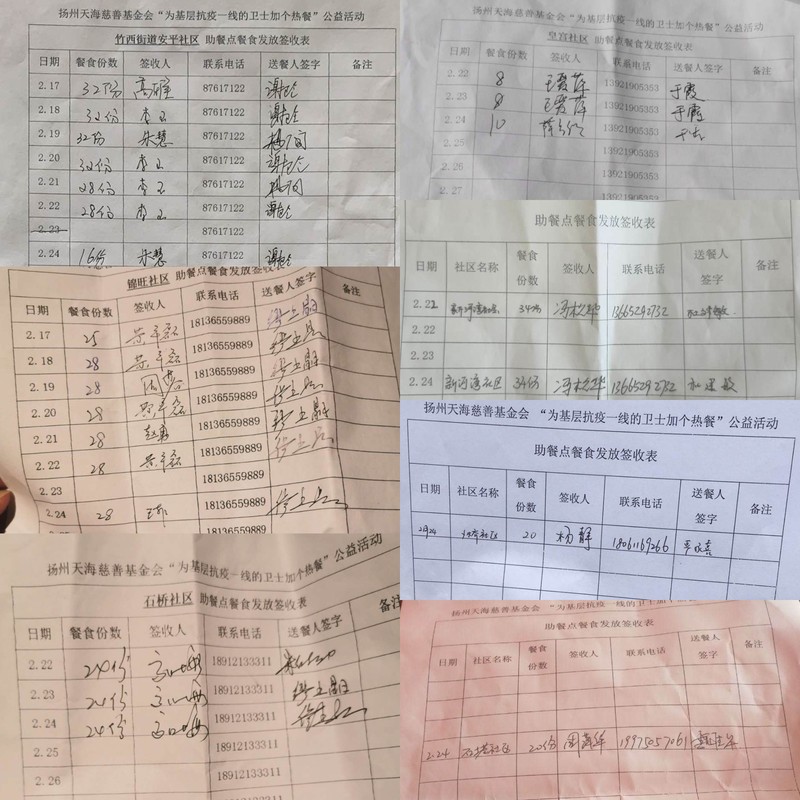 扬州天海慈善基金会 “为基层抗疫一线的卫士加个热餐” 公益活动
竹西街道安平社区 助餐点餐食发放签收表
日期 餐食份数 签收人 联系电话 送餐人签字 备注
2.17 32份 87617122
2.18 32份 李玉 87617122
2.19 32份 朱慧 87617122
2.20 32份 李玉 87617122
2.21 28份 李玉 87617122
2.22 28份 李玉 87617122
2.23 87617122
2.24 16份 朱慧 87617122
扬州天海慈善基金会 “为基层抗疫一线的卫士加个热餐” 公益活动
皇宫社区 助餐点餐食发放签收表
日期 餐食份数 签收人 联系电话 送餐人签字 备注
2.22 8 王爱萍 13921905353 于霞
2.23 8 王爱萍 13921905353 于霞
2.24 10 13921905353
2.25 13921905353
2.26 13921905353
2.27
助餐点餐食发放签收表
日期 社区名称 餐食份数 签收人 联系电话 送餐人签字 备注
2.22 34份 冯桂华 13665292732
2.22
2.23
2.24 新河湾社区 34份 冯桂华 13665292732
锦旺社区 助餐点餐食发放签收表
日期 餐食份数 签收人 联系电话 送餐人签字 备注
2.17 25 18136559889
2.18 28 18136559889
2.19 28 18136559889
2.20 28 18136559889
2.21 28 18136559889
2.22 28 18136559889
2.23 18136559889
2.24 28 18136559889
扬州天海慈善基金会 “为基层抗疫一线的卫士加个热餐” 公益活动
助餐点餐食发放签收表
日期 社区名称 餐食份数 签收人 联系电话 送餐人签字 备注
2月24 20 杨静 18061169266
扬州天海慈善基金会 “为基层抗疫一线的卫士加个热餐” 公益活动
石桥社区 助餐点餐食发放签收表
日期 餐食份数 签收人 联系电话 送餐人签字 备注
2.22 24份 18912133311
2.23 24份 18912133311
2.24 24份 18912133311
2.25 18912133311
2.26 18912133311
扬州天海慈善基金会 “为基层抗疫一线的卫士加个热餐” 公益活动
助餐点餐食发放签收表
日期 社区名称 餐食份数 签收人 联系电话 送餐人签字 备注
2.24 20份 19975057061